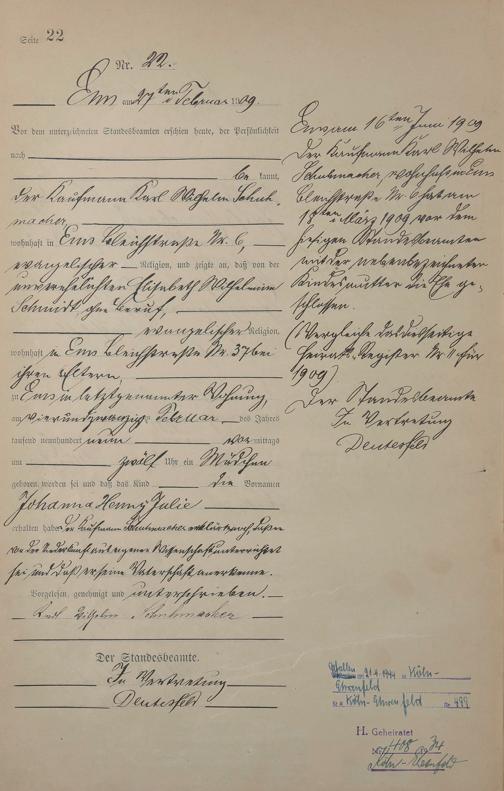 Seite 22
Nr. 22.
Ems am 27ten Februar 1909.
Vor dem unterzeichneten Standesbeamten erschien heute, der Persönlichkeit
nach
be kannt,
der Kaufmann Karl Wilhelm Schuh-
macher,
wohnhaft in Ems Bleichstraße Nr. 6,
evangelischer Religion, und zeigte an, daß von der
unverehelichten Elisabeth Wilhelmine
Schmidt, ohne Beruf,
evangelischer Religion,
wohnhaft in Ems Bleichstraße Nr. 37 bei
ihren Eltern,
zu Ems in letztgenannter Wohnung,
am vierundzwanzig Februar des Jahres
tausend neunhundert neun vor mittags
um zwölf Uhr ein Mädchen
geboren worden sei und daß das Kind die Vornamen
Johanna Henny Julie
erhalten habe. Der Kaufmann Schuhmacher erklärt noch, daß er
von der Niederkunft aus eigener Wissenschaft unterrichtet
sei und daß er seine Vaterschaft anerkenne.
Vorgelesen, genehmigt und unterschrieben.
Karl Wilhelm Schuhmacher
Der Standesbeamte.
In Vertretung
Ems am 16ten Juni 1909
Der Kaufmann Karl Wilhelm
Schuhmacher, wohnhaft in Ems
Bleichstraße Nr. 6 hat am
März 1909 vor dem
hiesigen Standesbeamten
mit der nebenbezeichneten
Kindesmutter die Ehe ge-
schlossen.
(Vergleiche das diesseitige
Heirats-Register Nr. für
1909)
Der Standesbeamte
In Vertretung
Köln-
Ehrenfeld
Köln-Ehrenfeld Nr. 499
H. Geheiratet
Nr. 408 34
Köln-Ehrenfeld